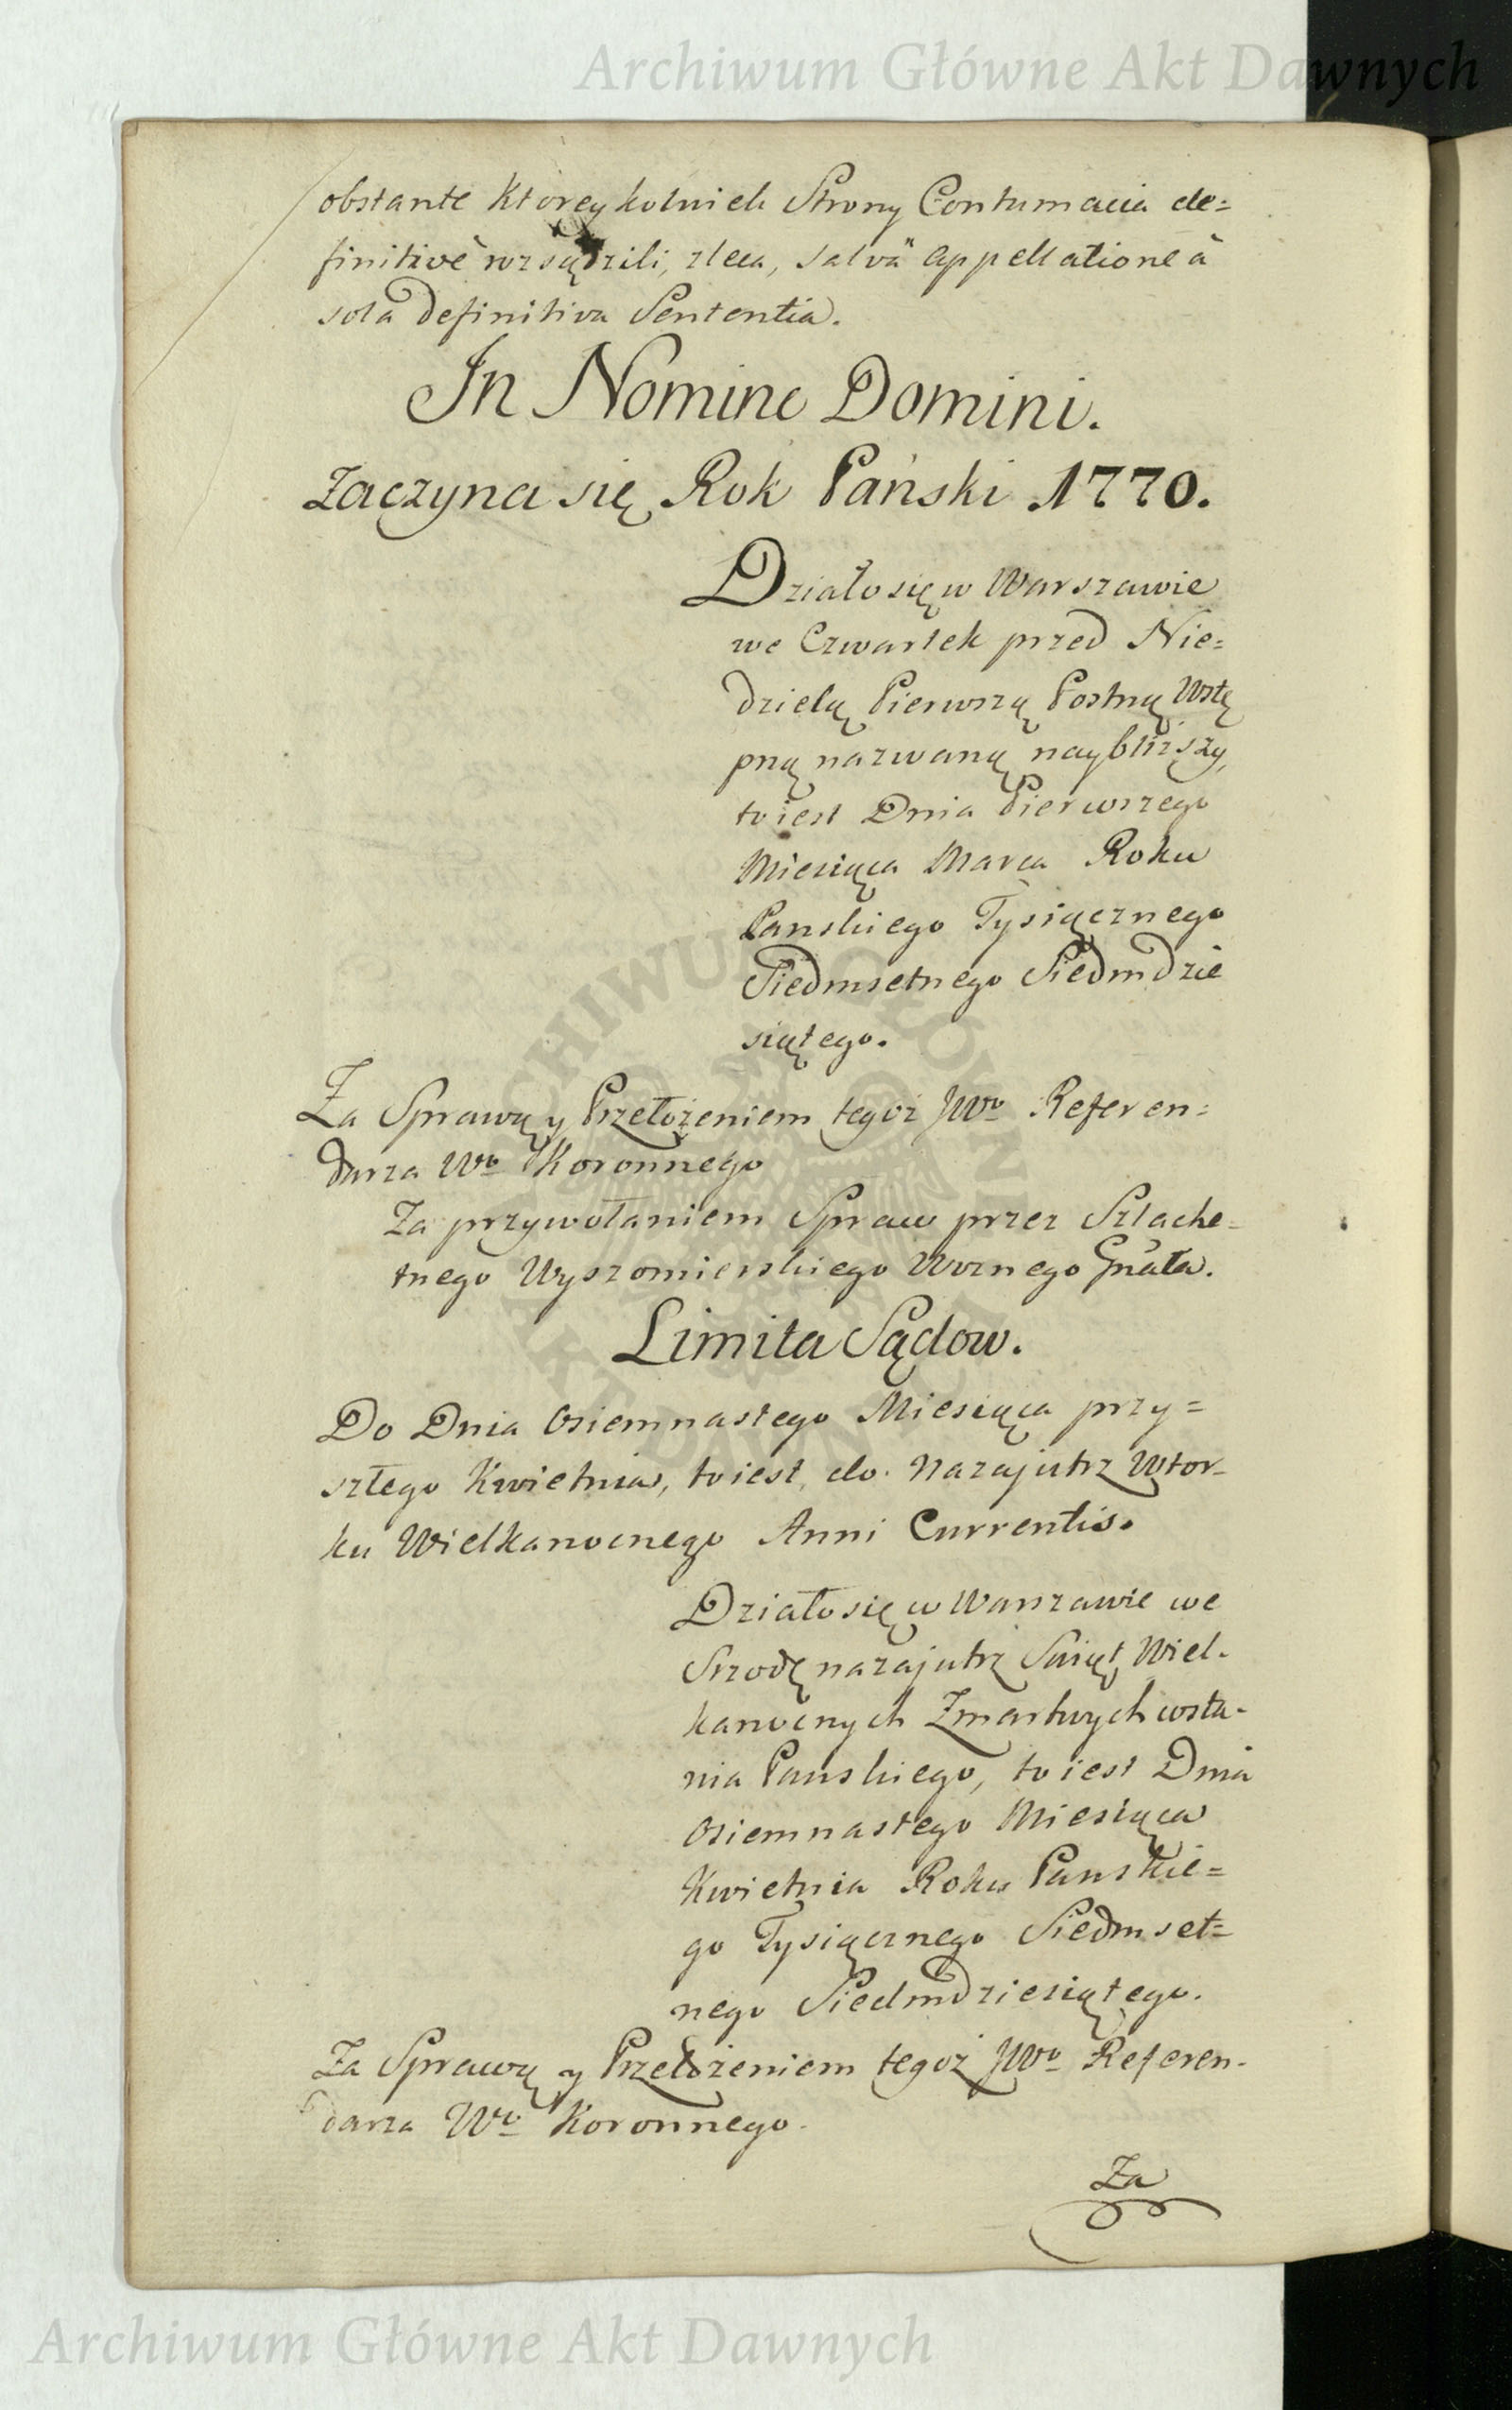 Archiwum Główne Akt Dawnych
obstante Ktoreykolwiek Strony Contumacia de=
finitivè rozsądzili, zleca, salvâ appellatione à
sola definitiva Sententia.
In Nomine Domini.
Zaczyna się Rok Pański 1770.
Działo się w Warszawie
we Czwartek przed Nie=
dzielą Pierwszą Postną Wstę
pną nazwaną naybliższy,
to iest Dnia Pierwszego
Miesiąca Marca Roku
Panskiego Tysiącznego
Siedmsetnego Siedmdzie
siątego.
Za Sprawą y Przełożeniem tegoż JWo Referen=
darza Wo Koronnego
Za przywołaniem Spraw przez Szlache=
tnego Wyszomierskiego Woznego Gnała.
Limita Sądow.
Do Dnia Osiemnastego Miesiąca przy=
szłego Kwietnia, to iest, do Nazajutrz Wtor-
ku Wielkanocnego Anni Currentis.
Działo się w Warszawie we
Srzodę nazajutrz Swiąt Wiel-
kanocnych Zmartwychwsta-
nia Panskiego, to iest Dnia
Osiemnastego Miesiąca
Kwietnia Roku Panskie=
go Tysiącznego Siedmset=
nego Siedmdziesiątego.
Za Sprawą y Przełożeniem tegoż JWo Referen-
darza Wo Koronnego.
Za
Archiwum Główne Akt Dawnych